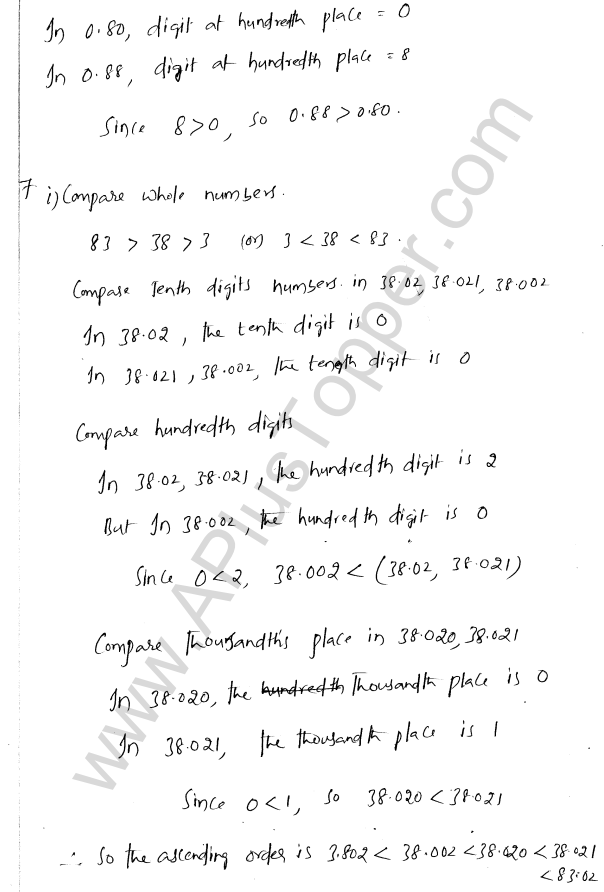 In 0.80, digit at hundredth place = 0
In 0.88, digit at hundredth place = 8
Since 8>0, so 0.88 > 0.80.
7 i) Compare whole numbers.
83 > 38 > 3 (or) 3 < 38 < 83.
Compare Tenth digits numbers. in 38.02, 38.021, 38.002
In 38.02, the tenth digit is 0
In 38.021, 38.002, the tength digit is 0
Compare hundredth digits
In 38.02, 38.021, the hundredth digit is 2
But In 38.002, the hundredth digit is 0
Since 0<2, 38.002 < (38.02, 38.021)
Compare Thousandths place in 38.020, 38.021
In 38.020, the hundredth Thousandth place is 0
In 38.021, the thousandth place is 1
Since 0<1, so 38.020 < 38.021
∴ So the ascending order is 3.802 < 38.002 < 38.020 < 38.021
< 83.02
www.APlusTopper.com